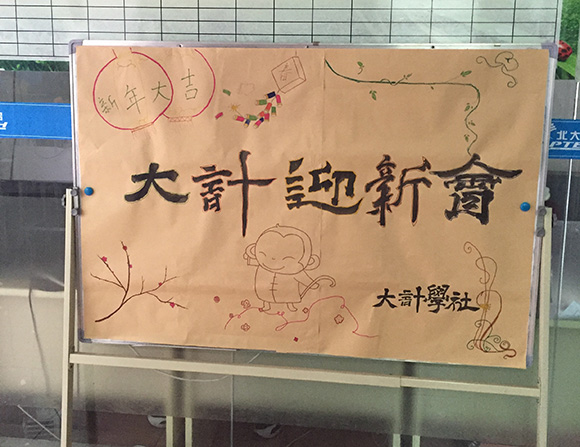 新年大吉
大計迎新會
大計學社
北大